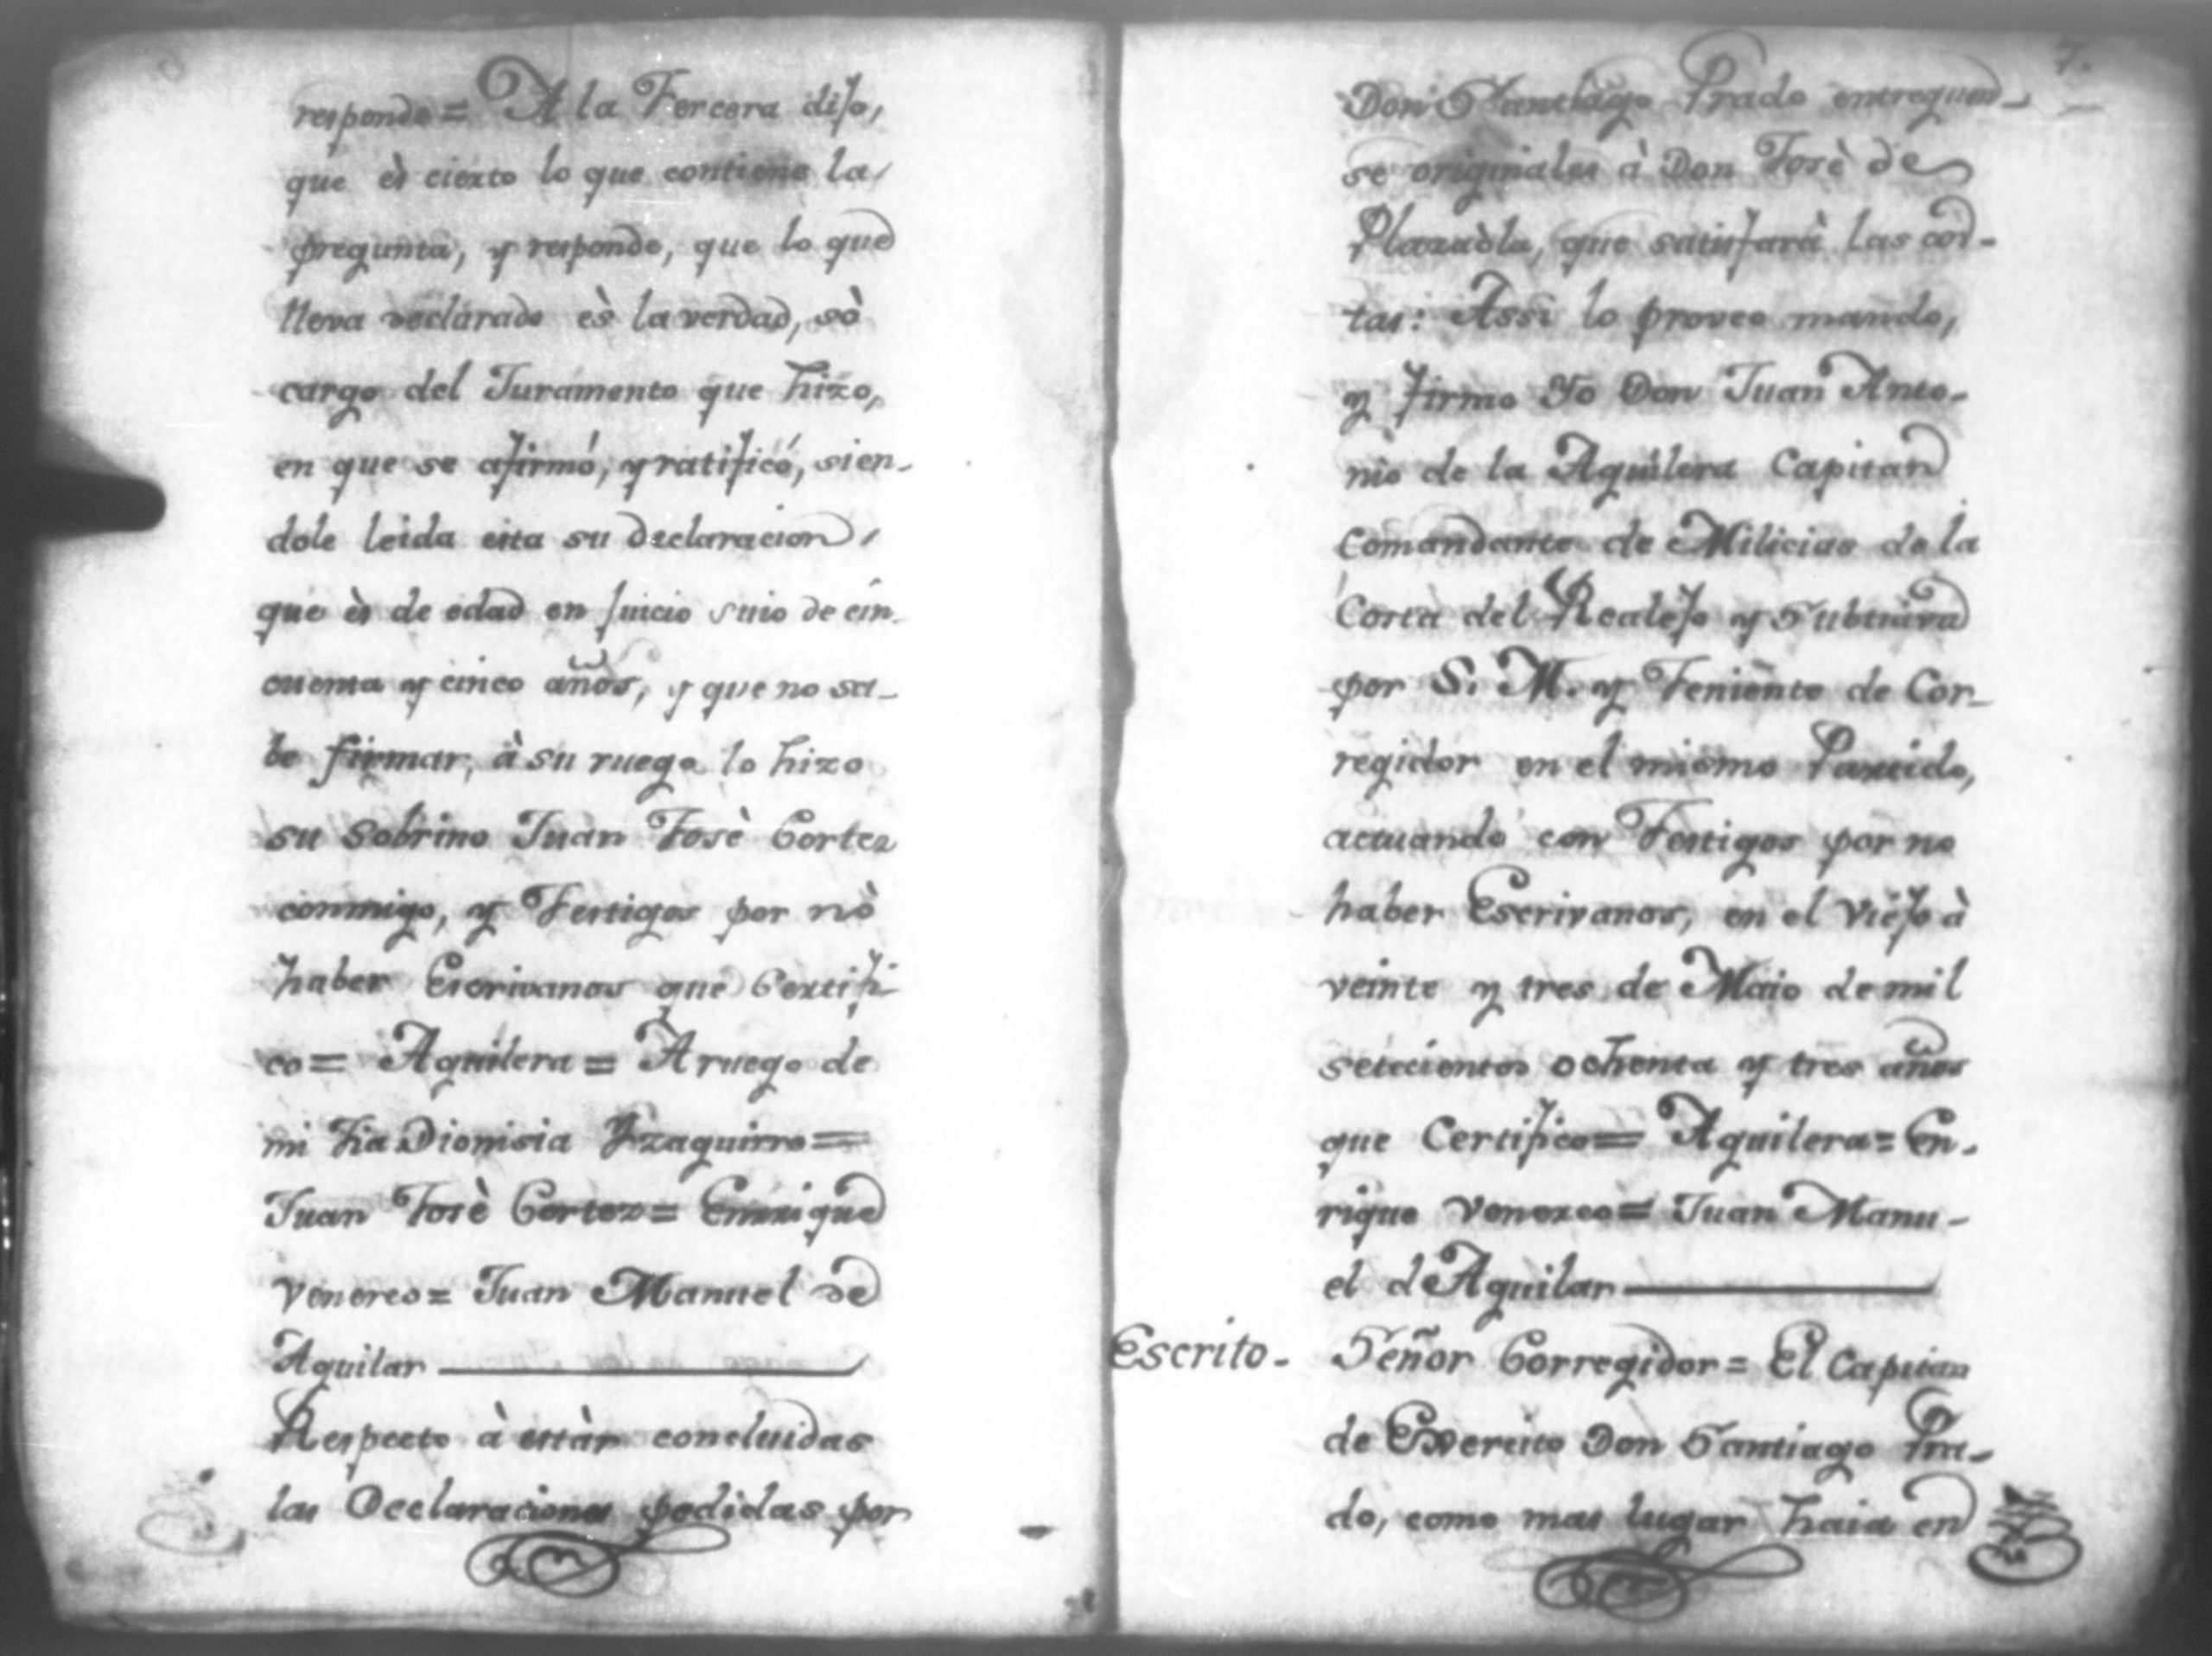 responde = A la Tercera dijo,
que ès cierto lo que contiene la
pregunta, y responde, que lo que
lleva declarado ès la verdad, sò
cargo del Juramento que hizo,
en que se afirmó, y ratificó, sien-
dole leida esta su declaracion,
que ès de edad en juicio suio de cin-
cuenta y cinco años, y que no sa-
be firmar, à su ruego lo hizo
su sobrino Juan Josè Cortez
conmigo, y Testigos por nò
haber Escrivanos que Certifi-
co = Aguilera = A ruego de
mi tia Dionisia Yzaguirre =
Juan Josè Cortez = Enrrique
Venereo = Juan Manuel de
Aguilar
Respecto à estàr concluidas
las Declaraciones pedidas por
7.
Don Santiago Prado entreguen-
se originales à Don Josè de
Plazaòla, que satisfarà las cos-
tas: Assi lo proveo mando,
y firmo Yo Don Juan Anto-
nio de la Aguilera Capitan
Comandante de Milicias de la
Costa del Realejo y
por S. M. y Teniente de Cor-
regidor en el mismo Partido,
actuando con Testigos por no
haber Escrivanos, en el Viejo à
veinte y tres de Maio de mil
setecientos ochenta y tres años
que Certifico = Aguilera = En-
rique Venereo = Juan Manu-
el de Aguilar
Escrito- Señor Corregidor = El Capitan
de Exercito Don Santiago Pra-
do, como mas lugar haia en